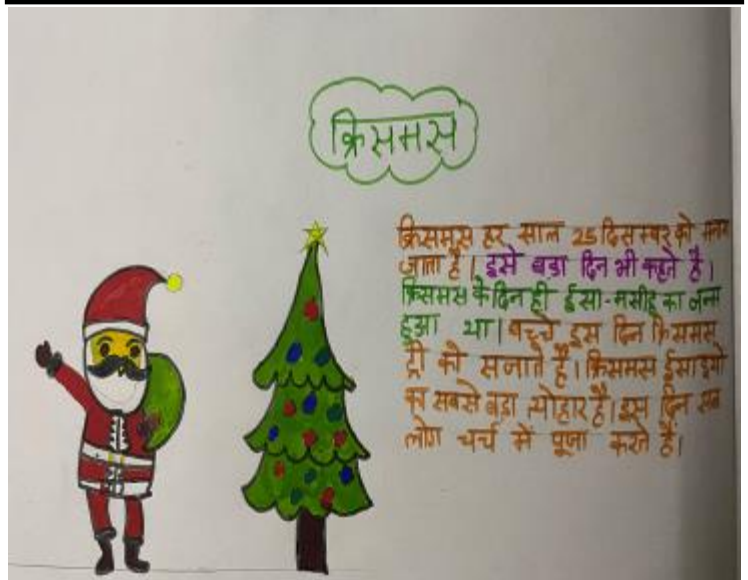 क्रिसमस
क्रिसमस हर साल 25 दिसम्बर को
जाता है। इसे बडा दिन भी कहते है।
क्रिसमस के दिन ही ईसा-मसीह का जन्म
हुआ था। बच्चे इस दिन क्रिसमस
ट्री को सजाते है। क्रिसमस ईसाइयो
का सबसे बड़ा त्योहार है। इस दिन सब
लोग चर्च मे पूजा करते है।